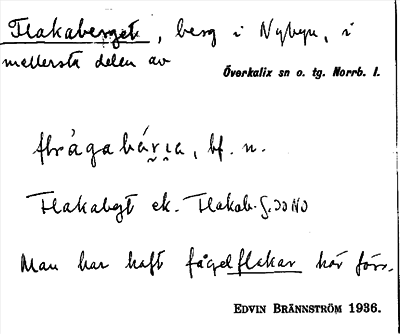 Flakaberget, berg i Nybyn, i
mellersta delen av
Överkalix sn o. tg. Norrb. l.
bf. n.
Flakabgt ek. Flakab. S. 30 NO
Man har haft fågelflakar här förr.
EDVIN BRÄNNSTRÖM 1936.